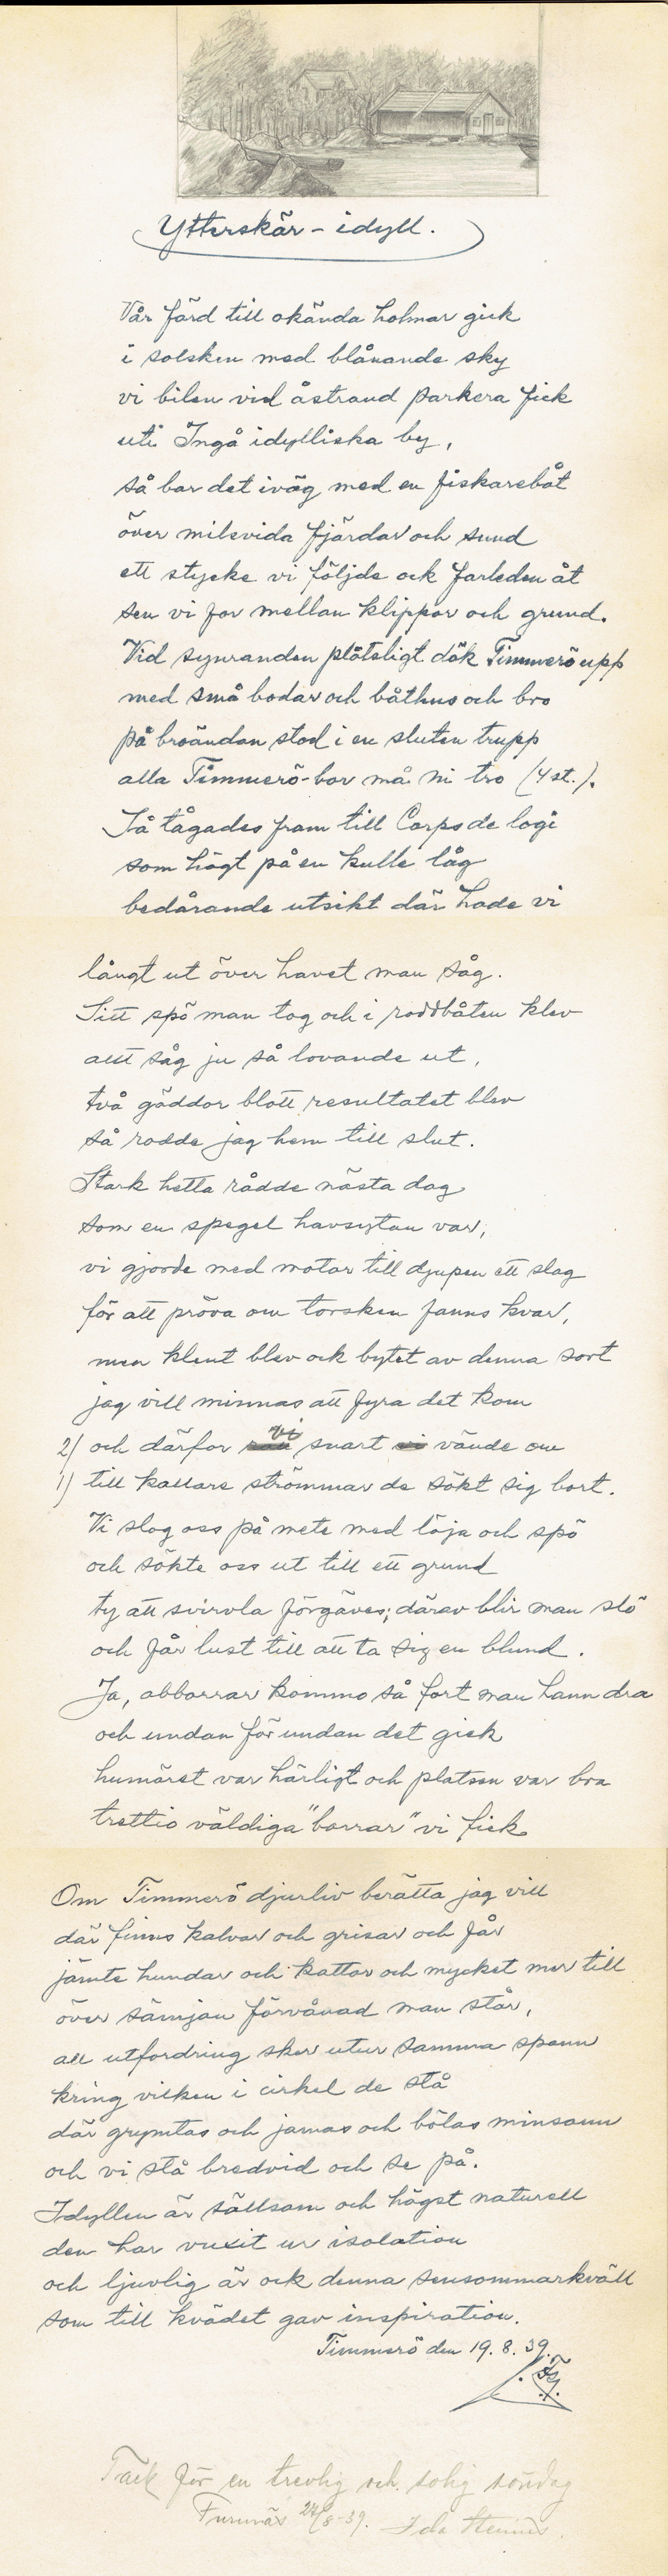 Ytterskär-idyll.
Vår färd till okända holmar gick
i solsken med blånande sky
vi bilen vid åstrand parkera fick
uti Ingå idylliska by,
så bar det iväg med en fiskarebåt
över milsvida fjärdar och sund
ett stycke vi följde ock farleden åt
sen vi for mellan klippor och grund.
Vid synranden plötsligt dök Timmerö upp
med små bodar och båthus och bro
på broändan stod i en sluten trupp
alla Timmerö-bor må ni tro (4 st.).
Så tågades fram till Corps de logi
som högt på en kulle låg
bedårande utsikt där hade vi
långt ut över havet man såg.
Sitt spö man tog och i roddbåten klev
allt såg ju så lovande ut,
två gäddor blott resultatet blev
så rodde jag hem till slut.
Stark hetta rådde nästa dag
som en spegel havsytan var,
vi gjorde med motor till djupen ett slag
för att pröva om torsken fanns kvar,
men klent blev ock bytet av denna sort
jag vill minnas att fyra det kom
2) och därför vi snart vi vände om
1) till kallare strömmar de sökt sig bort.
Vi slog oss på mete med löja och spö
och sökte oss ut till ett grund
ty att svirvla förgäves; därav blir man slö
och får lust till att ta sig en blund.
Ja, abborrar kommo så fort man hann dra
och undan för undan det gick
humöret var härligt och platsen var bra
trettio väldiga "borrar" vi fick
Om Timmerö djurliv berätta jag vill
där finns kalvar och grisar och får
jämte hundar och kattor och mycket mer till
över sämjan förvånad man står,
all utfordring sker utur samma spann
kring vilken i cirkel de stå
där grymtas och jamas och bölas minsann
och vi stå bredvid och se på.
Idyllen är sällsam och högst naturell
den har vuxit ur isolation
och ljuvlig är ock denna sensommarkväll
som till kvädet gav inspiration.
Timmerö den 19.8.39.
Tack för en trevlig och solig söndag
Furunäs 27/8-39. Ida